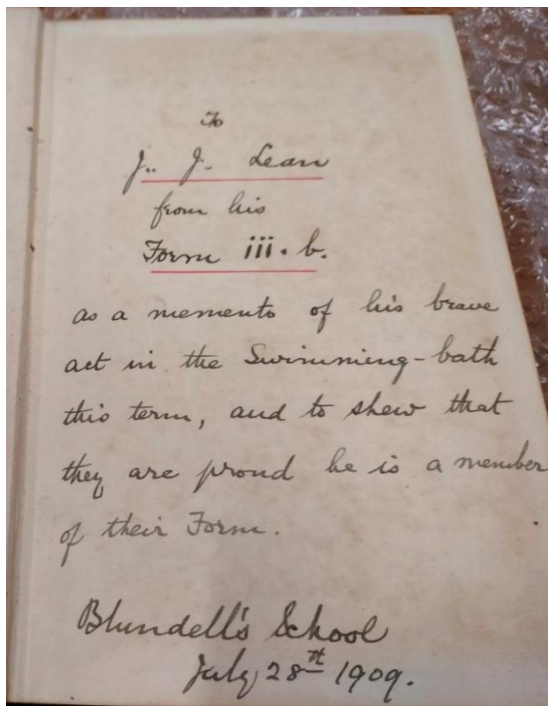 To
J. J. Lean
from his
Form iii. b.
as a memento of his brave
act in the Swimming-bath
this term, and to shew that
they are proud he is a member
of their Form.
Blundell's School
July 28th 1909.